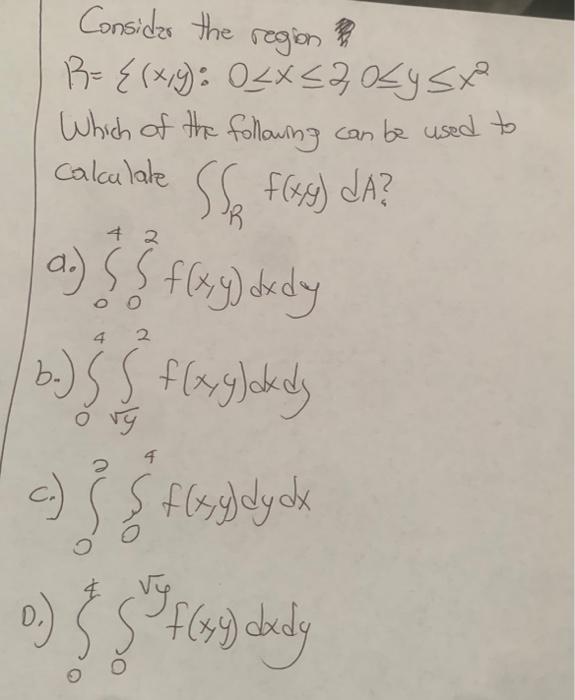 Consider the region
R= {(x,y): 0≤x≤2, 0≤y≤x²
Which of the following can be used to
calculate ∬_R f(x,y) dA?
a.) ∫_0^4 ∫_0^2 f(x,y) dxdy
b.) ∫_0^4 ∫_√y^2 f(x,y)dxdy
c.) ∫_0^2 ∫_0^4 f(x,y)dydx
D.) ∫_0^4 ∫_0^√y f(x,y) dxdy